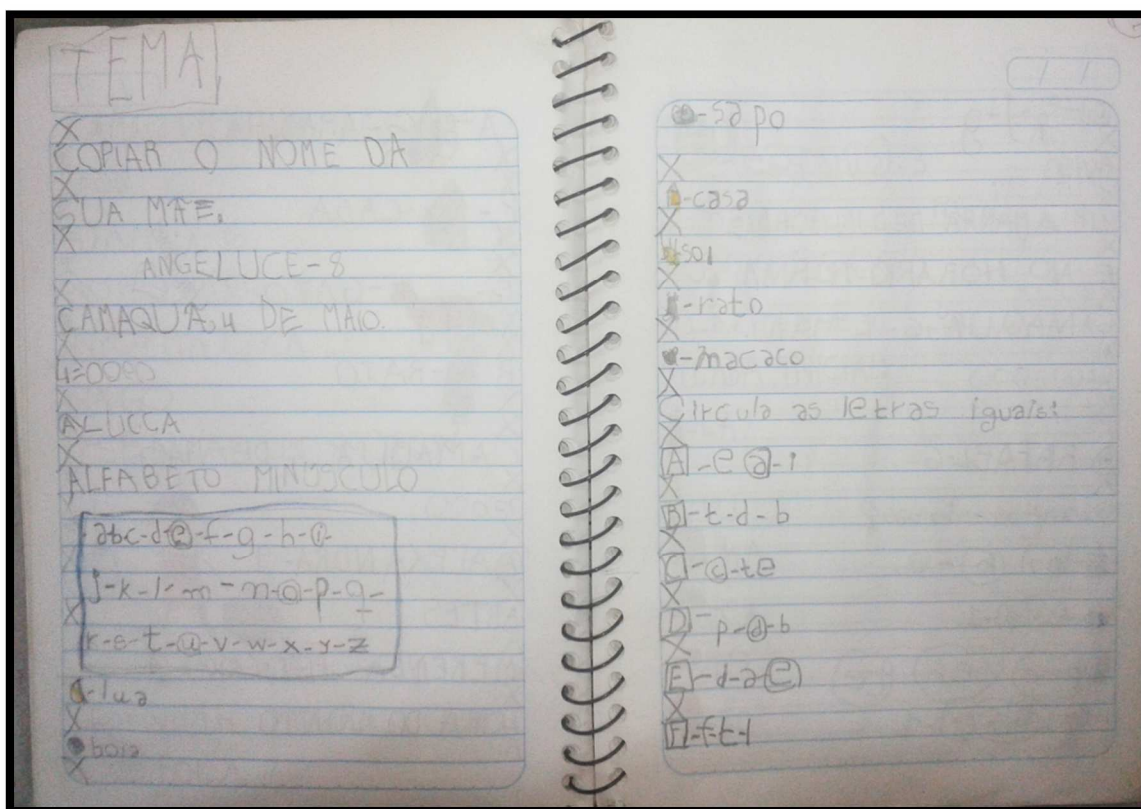 TEMA
COPIAR O NOME DA
SUA MÃE.
ANGELUCE-8
CAMAQUÃ, 4 DE MAIO.
4=0000
LUCCA
ALFABETO MINÚSCULO
abc-d-e-f-g-h-i-
j-k-l-m-n-o-p-q-
r-s-t-u-v-w-x-y-z
-lua
bola
-sapo
-casa
-sol
-rato
-macaco
Circula as letras iguais:
A-e a-i
B-t-d-b
C-c-te
D-p-d-b
E-d-a e
F-f-t-l